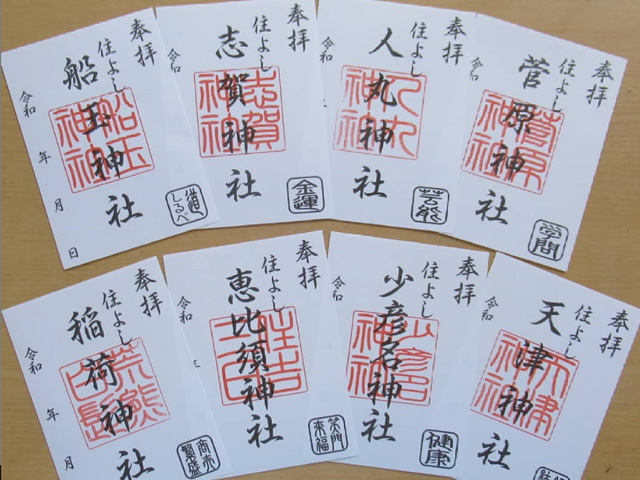 奉拝
住よし
船玉神社
船玉神社
令和 年 月 日
道しるべ
奉拝
住よし
志賀神社
志賀神社
令和
金運
奉拝
住よし
人丸神社
人丸神社
令和
芸能
奉拝
住よし
菅原神社
菅原神社
令和
学問
奉拝
住よし
稲荷神社
令和 年 月
商売繁盛
奉拝
住よし
恵比須神社
住吉
令和
笑門来福
奉拝
住よし
少彦名神社
少彦名神社
令和
健康
奉拝
住よし
天津神社
天津神社
令和